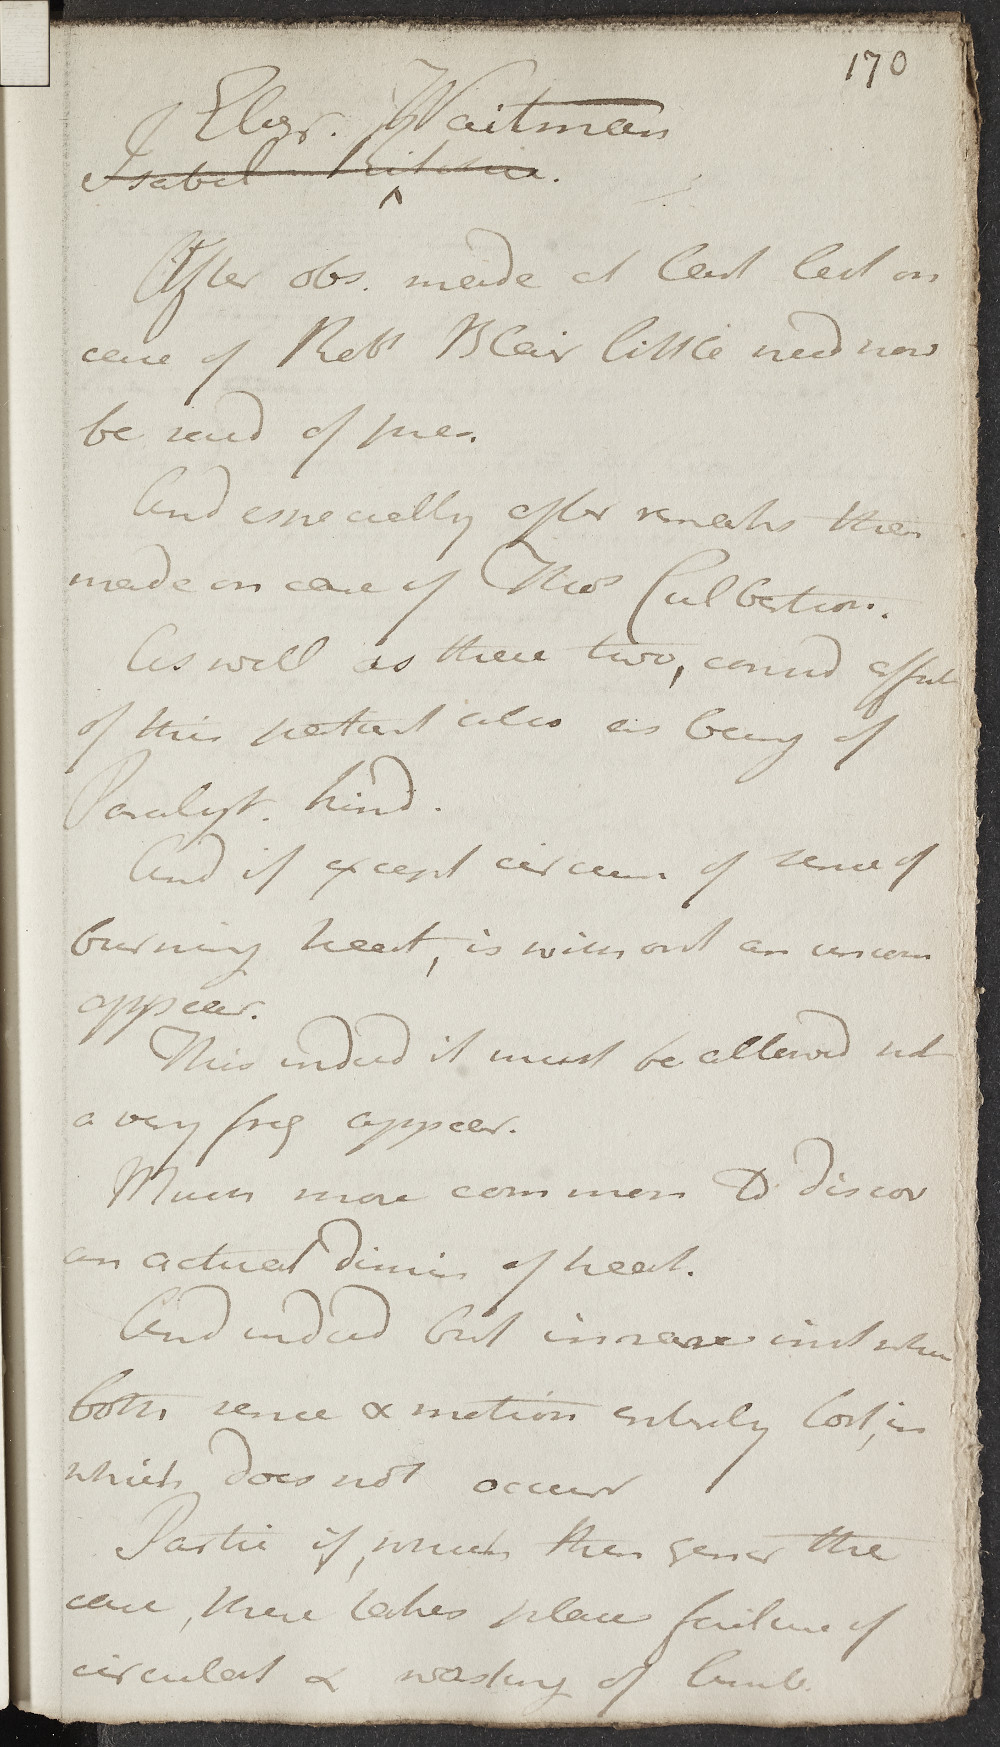 170
Eber. Waitman
Isabel
^
After obs. made at last lect on
case of Robt Blair little need now
be said of pres.
And especially after remarks then
made on case of Thos Culbertson.
As well as these two, consid affect
of this patient also as being of
Paralyt. kind.
And if except circum of sense of
burning heat, is without an uncom
appear.
This indeed it must be allowed not
a very freq appear.
Much more common to discov
an actual dimin of heat.
And indeed but inst when
both sence & motion entirely lost, in
which does not occur
Partic if, which then gener the
case, there takes place failure of
circulat & wasting of limb.